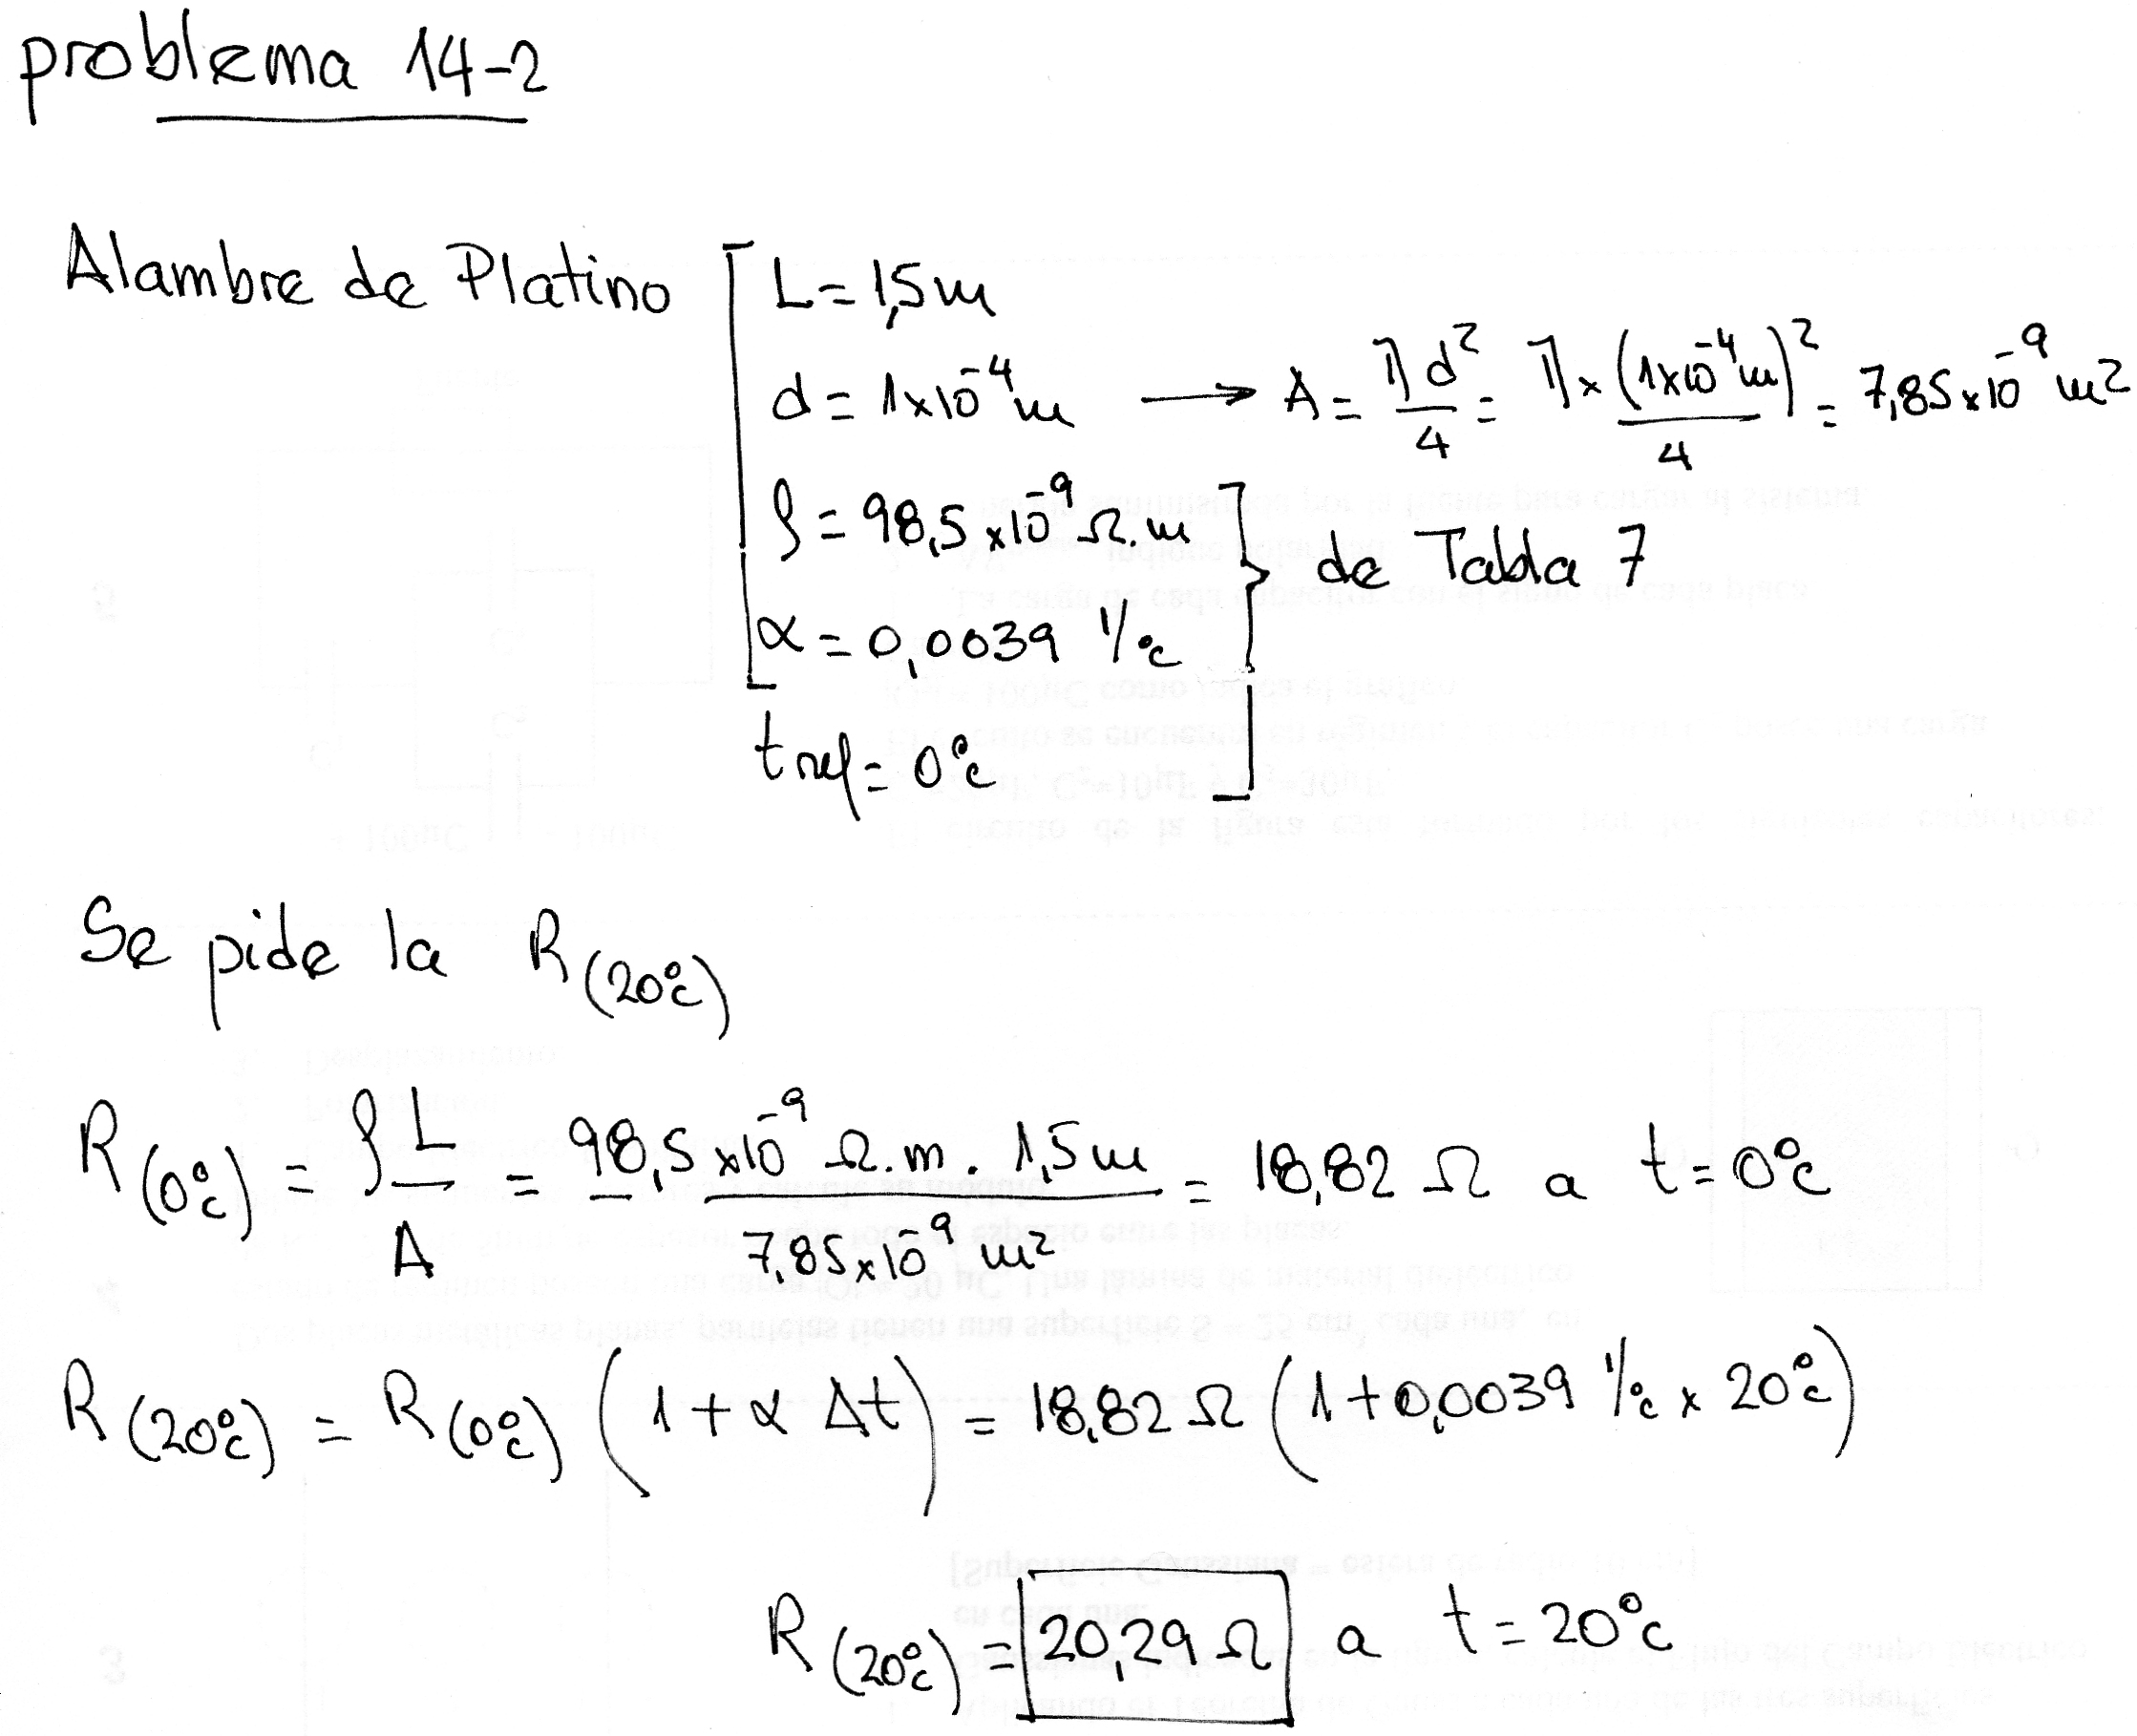 problema 14-2
Alambre de Platino
L = 1,5 m
d = 1x10⁻⁴ m → A = π d²/4 = π x (1x10⁻⁴ m)²/4 = 7,85 x 10⁻⁹ m²
ρ = 98,5 x 10⁻⁹ Ω.m
de Tabla 7
α = 0,0039 1/°c
t ref = 0°c
Se pide la R(20°c)
R(0°c) = ρ L/A = 98,5 x 10⁻⁹ Ω.m . 1,5 m / 7,85 x 10⁻⁹ m² = 18,82 Ω a t = 0°c
R(20°c) = R(0°c) (1 + α Δt) = 18,82 Ω (1 + 0,0039 1/°c x 20°c)
R(20°c) = 20,29 Ω a t = 20°c